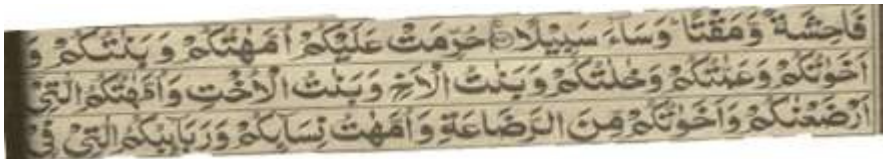 فَاحِشَةً وَّمَقْتًا ؕ وَسَآءَ سَبِيْلًا ۞ حُرِّمَتْ عَلَيْكُمْ اُمَّهٰتُكُمْ وَ بَنٰتُكُمْ وَ
اَخَوٰتُكُمْ وَعَمّٰتُكُمْ وَخٰلٰتُكُمْ وَ بَنٰتُ الْاَخِ وَ بَنٰتُ الْاُخْتِ وَ اُمَّهٰتُكُمُ الّٰتِيْٓ
اَرْضَعْنَكُمْ وَ اَخَوٰتُكُمْ مِّنَ الرَّضَاعَةِ وَ اُمَّهٰتُ نِسَآئِكُمْ وَ رَبَآئِبُكُمُ الّٰتِيْ فِيْ